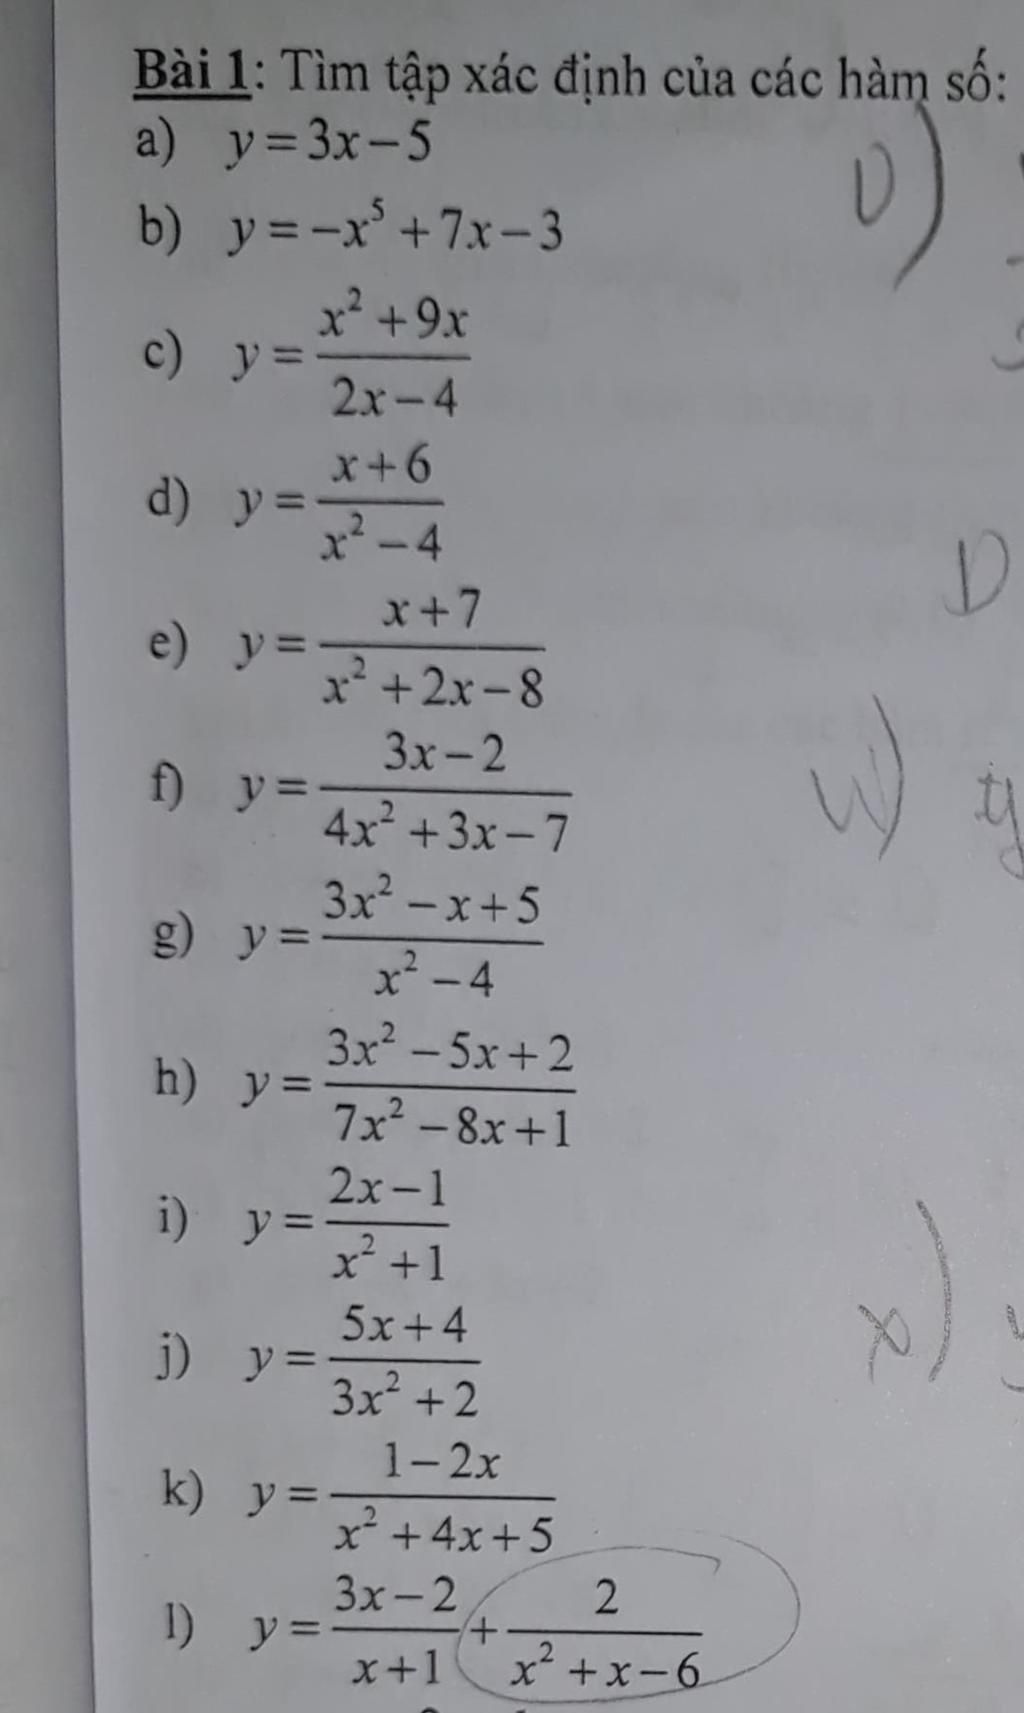 Bài 1: Tìm tập xác định của các hàm số:
a) y = 3x − 5
b) y = −x⁵ + 7x − 3
c) y = (x² + 9x)/(2x − 4)
d) y = (x + 6)/(x² − 4)
e) y = (x + 7)/(x² + 2x − 8)
f) y = (3x − 2)/(4x² + 3x − 7)
g) y = (3x² − x + 5)/(x² − 4)
h) y = (3x² − 5x + 2)/(7x² − 8x + 1)
i) y = (2x − 1)/(x² + 1)
j) y = (5x + 4)/(3x² + 2)
k) y = (1 − 2x)/(x² + 4x + 5)
l) y = (3x − 2)/(x + 1) + 2/(x² + x − 6)
D
w)
x)